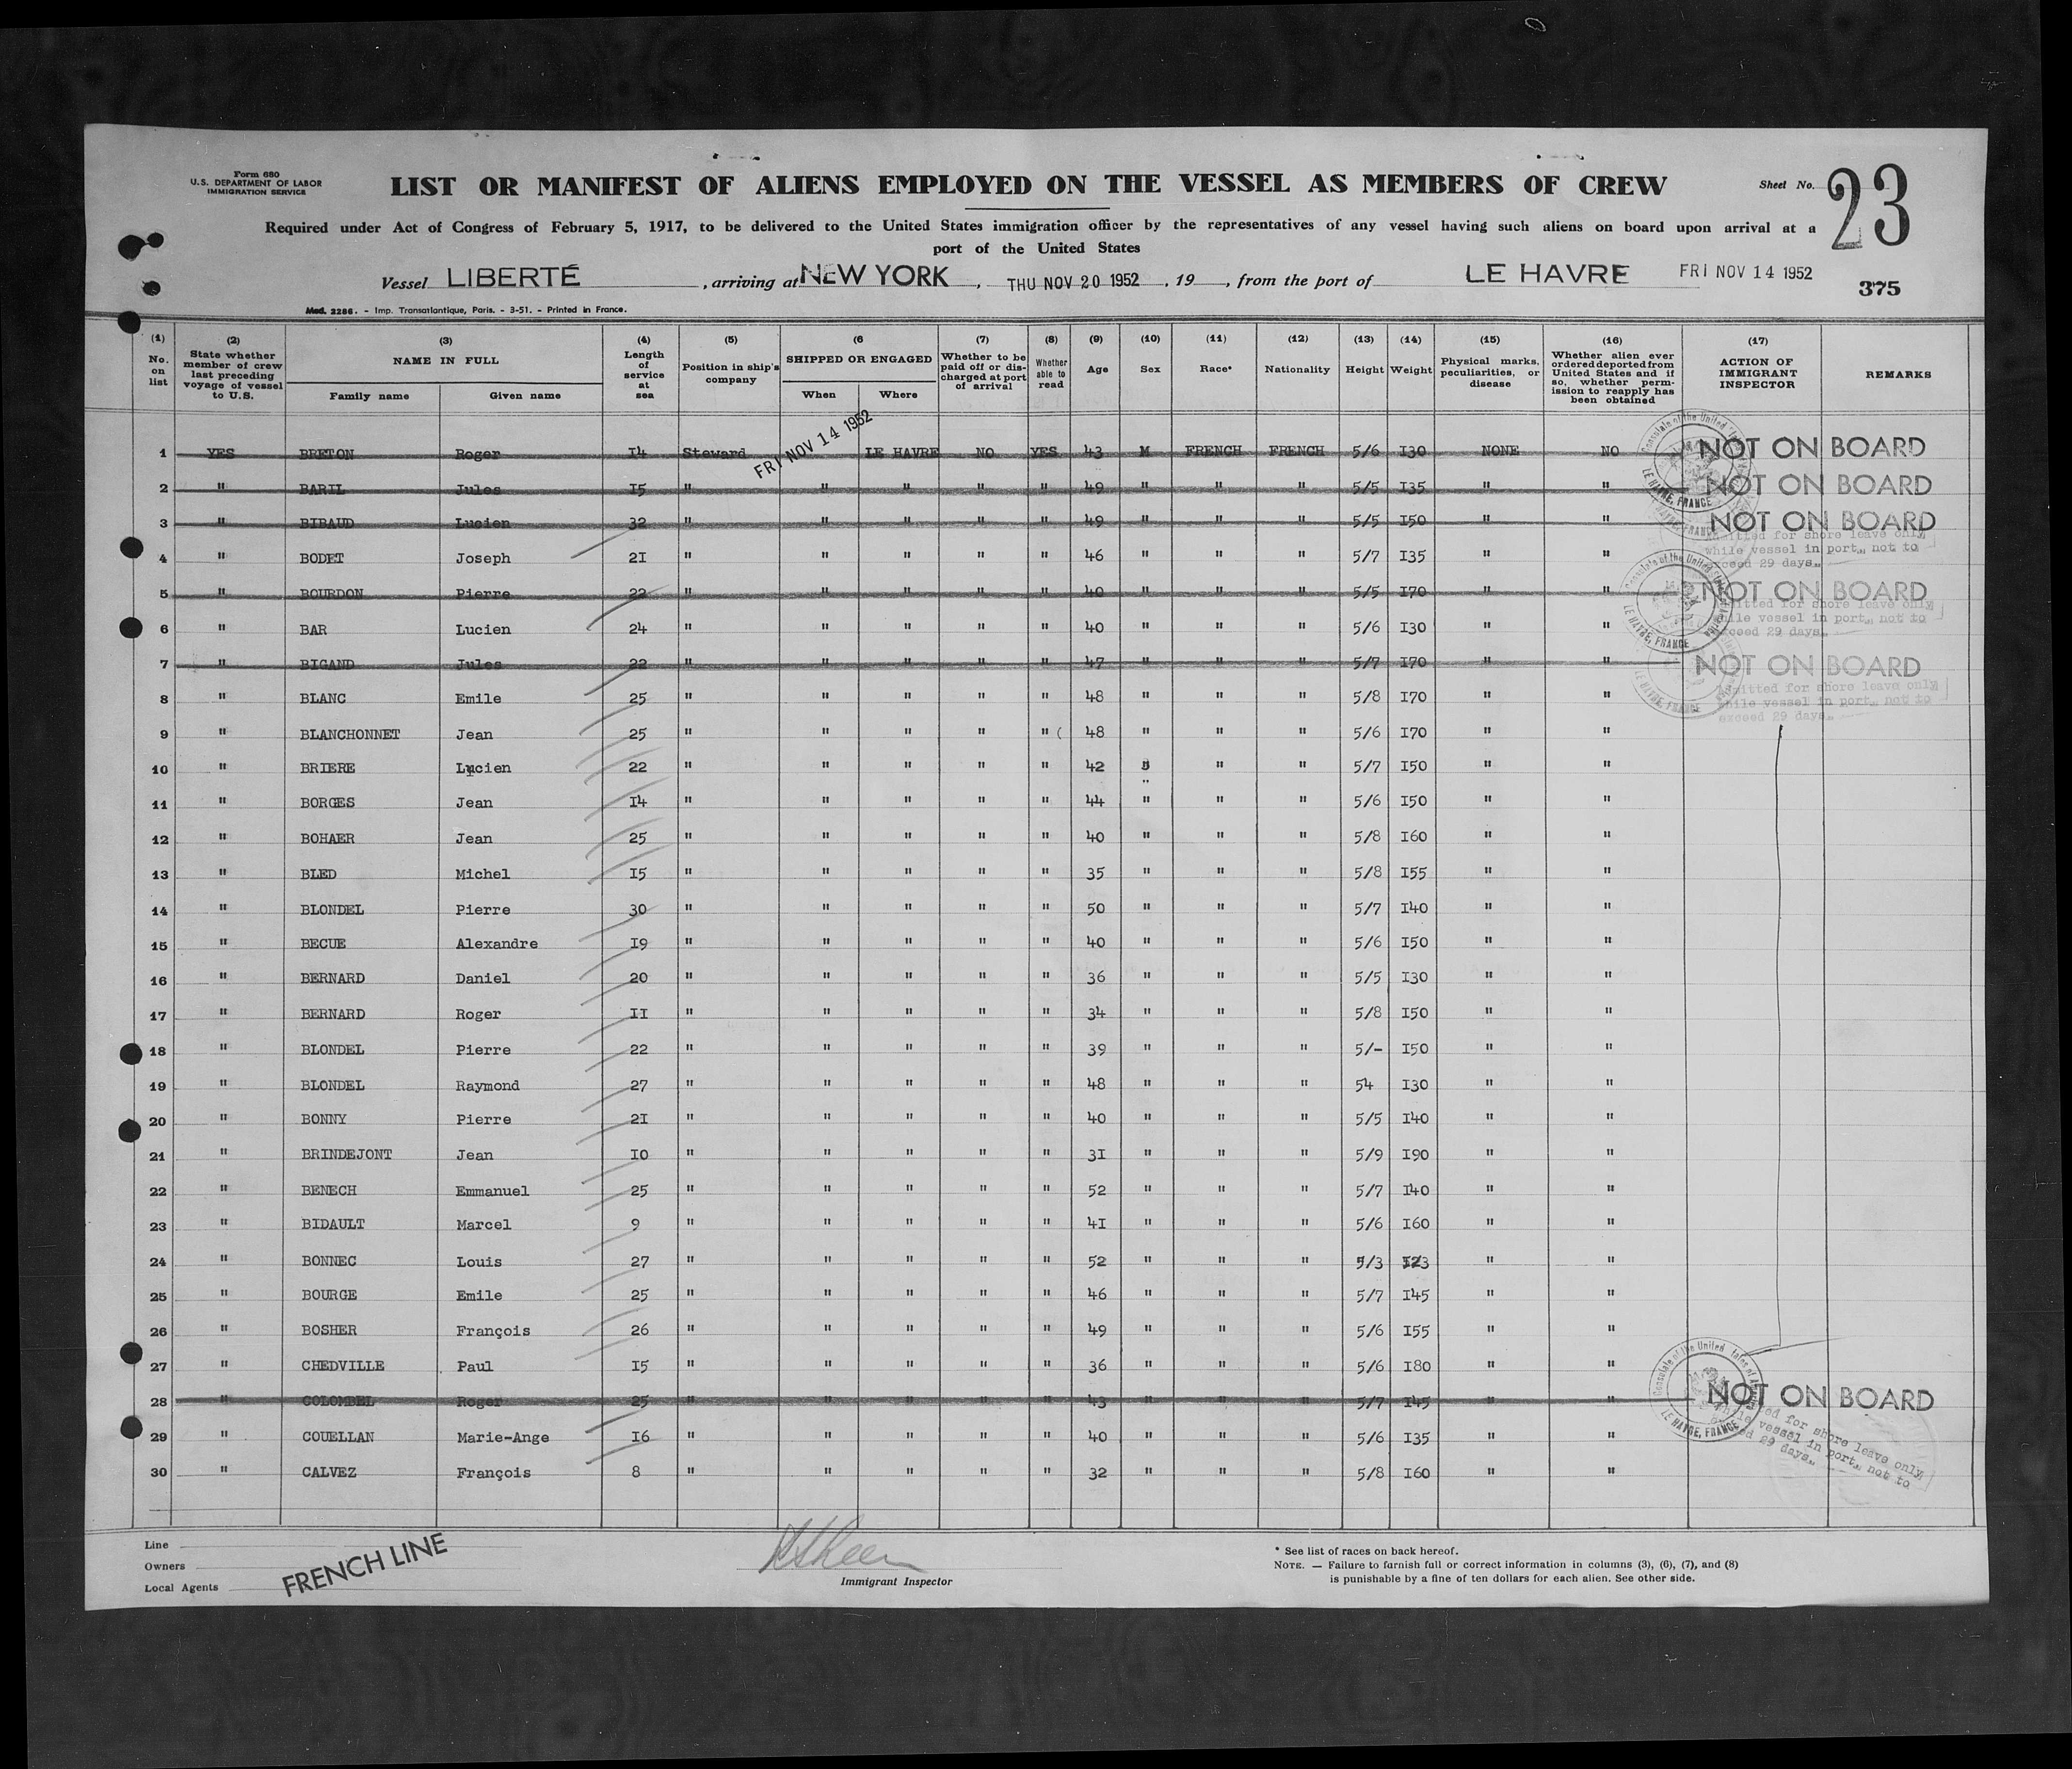 Form 680
U.S. DEPARTMENT OF LABOR
IMMIGRATION SERVICE
LIST OR MANIFEST OF ALIENS EMPLOYED ON THE VESSEL AS MEMBERS OF CREW
Sheet No. 23
Required under Act of Congress of February 5, 1917, to be delivered to the United States immigration officer by the representatives of any vessel having such aliens on board upon arrival at a
port of the United States
Vessel LIBERTÉ , arriving at NEW YORK , THU NOV 20 1952 , 19 , from the port of LE HAVRE FRI NOV 14 1952
375
Mod. 2286. - Imp. Transatlantique, Paris. - 3-51. - Printed in France.
(1) No. on list (2) State whether member of crew last preceding voyage of vessel to U.S. (3) NAME IN FULL Family name Given name (4) Length of service at sea (5) Position in ship's company (6 SHIPPED OR ENGAGED When Where (7) Whether to be paid off or discharged at port of arrival (8) Whether able to read (9) Age (10) Sex (11) Race* (12) Nationality (13) Height (14) Weight (15) Physical marks, peculiarities, or disease (16) Whether alien ever ordered deported from United States and if so, whether permission to reapply has been obtained (17) ACTION OF IMMIGRANT INSPECTOR REMARKS
1 YES BRETON Roger 14 Steward FRI NOV 14 1952 LE HAVRE NO YES 43 M FRENCH FRENCH 5/6 130 NONE NO NOT ON BOARD
2 " BARIL Jules 15 " " " " " 49 " " " 5/5 135 " " NOT ON BOARD
3 " BIBAUD Lucien 32 " " " " " 49 " " " 5/5 150 " " NOT ON BOARD
4 " BODET Joseph 21 " " " " " 46 " " " 5/7 135 " " Admitted for shore leave only while vessel in port, not to exceed 29 days.
5 " BOURDON Pierre 22 " " " " " 40 " " " 5/5 170 " " NOT ON BOARD
6 " BAR Lucien 24 " " " " " 40 " " " 5/6 130 " " Admitted for shore leave only while vessel in port, not to exceed 29 days.
7 " BIGAND Jules 22 " " " " " 47 " " " 5/7 170 " " NOT ON BOARD
8 " BLANC Emile 25 " " " " " 48 " " " 5/8 170 " " Admitted for shore leave only while vessel in port, not to exceed 29 days.
9 " BLANCHONNET Jean 25 " " " " " 48 " " " 5/6 170 " "
10 " BRIERE Lucien 22 " " " " " 42 " " " 5/7 150 " "
11 " BORGES Jean 14 " " " " " 44 " " " 5/6 150 " "
12 " BOHAER Jean 25 " " " " " 40 " " " 5/8 160 " "
13 " BLED Michel 15 " " " " " 35 " " " 5/8 155 " "
14 " BLONDEL Pierre 30 " " " " " 50 " " " 5/7 140 " "
15 " BECUE Alexandre 19 " " " " " 40 " " " 5/6 150 " "
16 " BERNARD Daniel 20 " " " " " 36 " " " 5/5 130 " "
17 " BERNARD Roger 11 " " " " " 34 " " " 5/8 150 " "
18 " BLONDEL Pierre 22 " " " " " 39 " " " 5/- 150 " "
19 " BLONDEL Raymond 27 " " " " " 48 " " " 54 130 " "
20 " BONNY Pierre 21 " " " " " 40 " " " 5/5 140 " "
21 " BRINDEJONT Jean 10 " " " " " 31 " " " 5/9 190 " "
22 " BENECH Emmanuel 25 " " " " " 52 " " " 5/7 140 " "
23 " BIDAULT Marcel 9 " " " " " 41 " " " 5/6 160 " "
24 " BONNEC Louis 27 " " " " " 52 " " " 5/3 " "
25 " BOURGE Emile 25 " " " " " 46 " " " 5/7 145 " "
26 " BOSHER François 26 " " " " " 49 " " " 5/6 155 " "
27 " CHEDVILLE Paul 15 " " " " " 36 " " " 5/6 180 " "
28 " COLOMBEL Roger 25 " " " " " 43 " " " 5/7 145 " " NOT ON BOARD
29 " COUELLAN Marie-Ange 16 " " " " " 40 " " " 5/6 135 " " Admitted for shore leave only while vessel in port, not to exceed 29 days.
30 " CALVEZ François 8 " " " " " 32 " " " 5/8 160 " "
Line
Owners
Local Agents
FRENCH LINE
Immigrant Inspector
* See list of races on back hereof.
NOTE. — Failure to furnish full or correct information in columns (3), (6), (7), and (8)
is punishable by a fine of ten dollars for each alien. See other side.